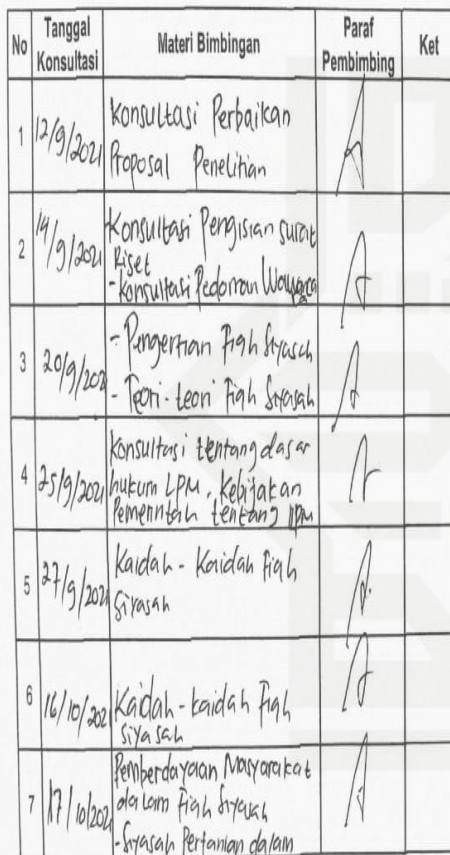 No Tanggal Konsultasi Materi Bimbingan Paraf Pembimbing Ket
1 12/9/2021 Konsultasi Perbaikan
Proposal Penelitian
2 14/9/2021 Konsultasi Pengisian surat
Riset
- Konsultasi Pedoman
3 20/9/202 - Pengertian Fiqh Siyasah
- Teori-teori Fiqh Siyasah
4 25/9/2021 Konsultasi tentang dasar
hukum LPM, Kebijakan
Pemerintah tentang LPM
5 27/9/2021 Kaidah - Kaidah Fiqh
Siyasah
6 16/10/202 Kaidah - kaidah Fiqh
Siyasah
7 17/10/2021 Pemberdayaan Masyarakat
dalam Fiqh Siyasah
- Siyasah Pertanian dalam